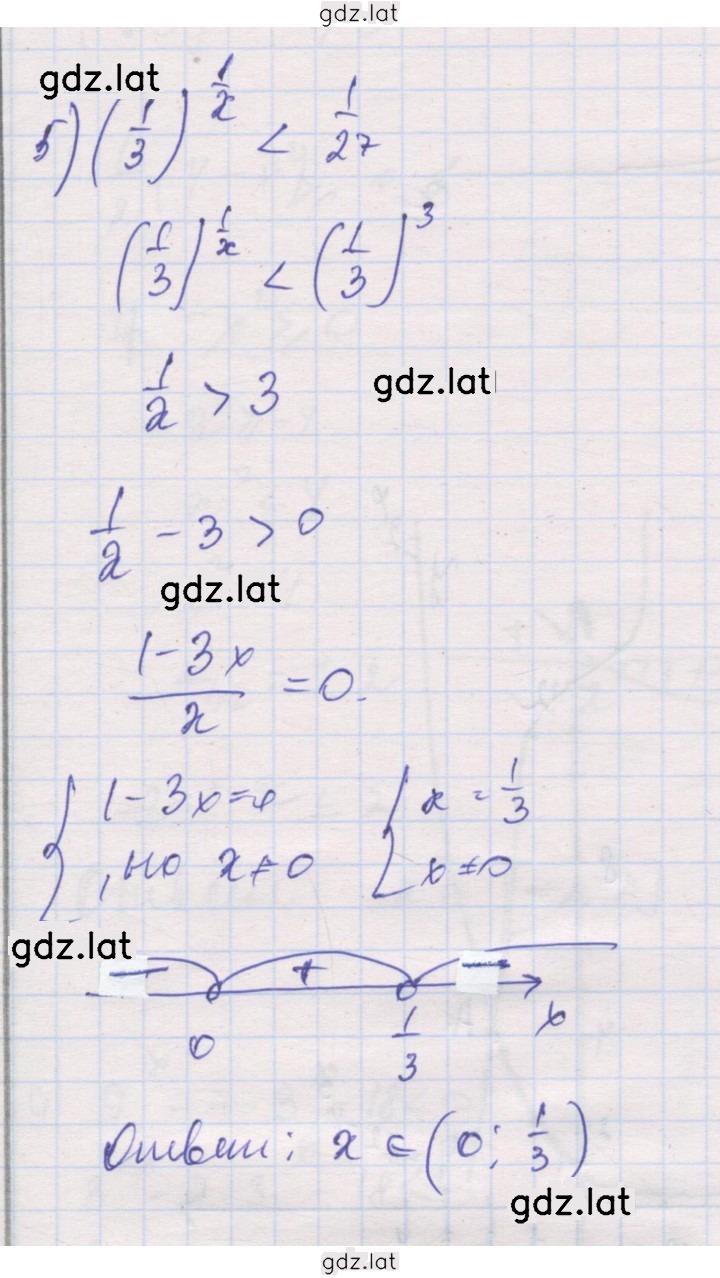 gdz.lat
gdz.lat
5) (1/3)^(1/x) < 1/27
(1/3)^(1/x) < (1/3)^3
1/x > 3
gdz.lat
1/x - 3 > 0
gdz.lat
(1-3x)/x = 0.
{ 1-3x=0 { x = 1/3
, но x≠0 x≠0
gdz.lat
− + −
0 1/3 x
Ответ: x ∈ (0; 1/3)
gdz.lat
gdz.lat